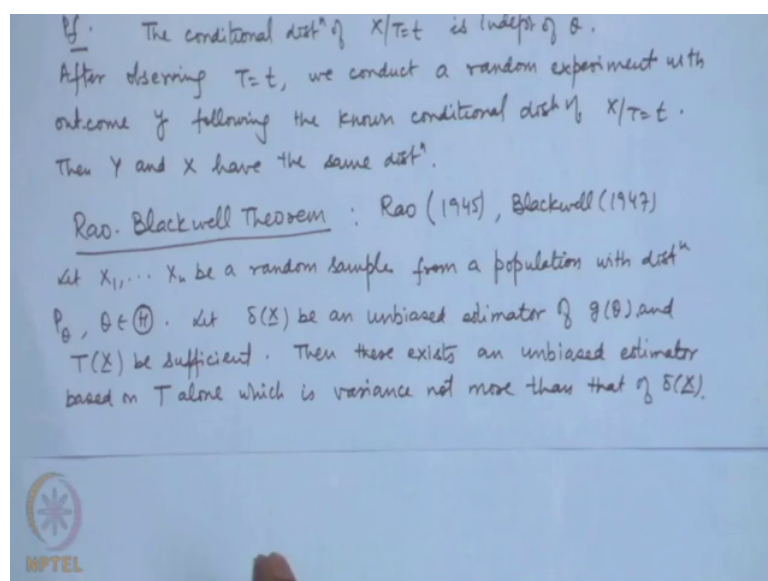 Pf. The conditional distⁿ of X/T=t is indept of θ.
After observing T=t, we conduct a random experiment with
outcome y following the known conditional dist of X/T=t.
Then Y and X have the same distⁿ.
Rao-Blackwell Theorem : Rao (1945), Blackwell (1947)
Let X₁,... Xₙ be a random sample from a population with distⁿ
P_θ, θ ∈ Ⓗ. Let δ(X) be an unbiased estimator of g(θ) and
T(X) be sufficient. Then there exists an unbiased estimator
based on T alone which is variance not more than that of δ(X).
NPTEL